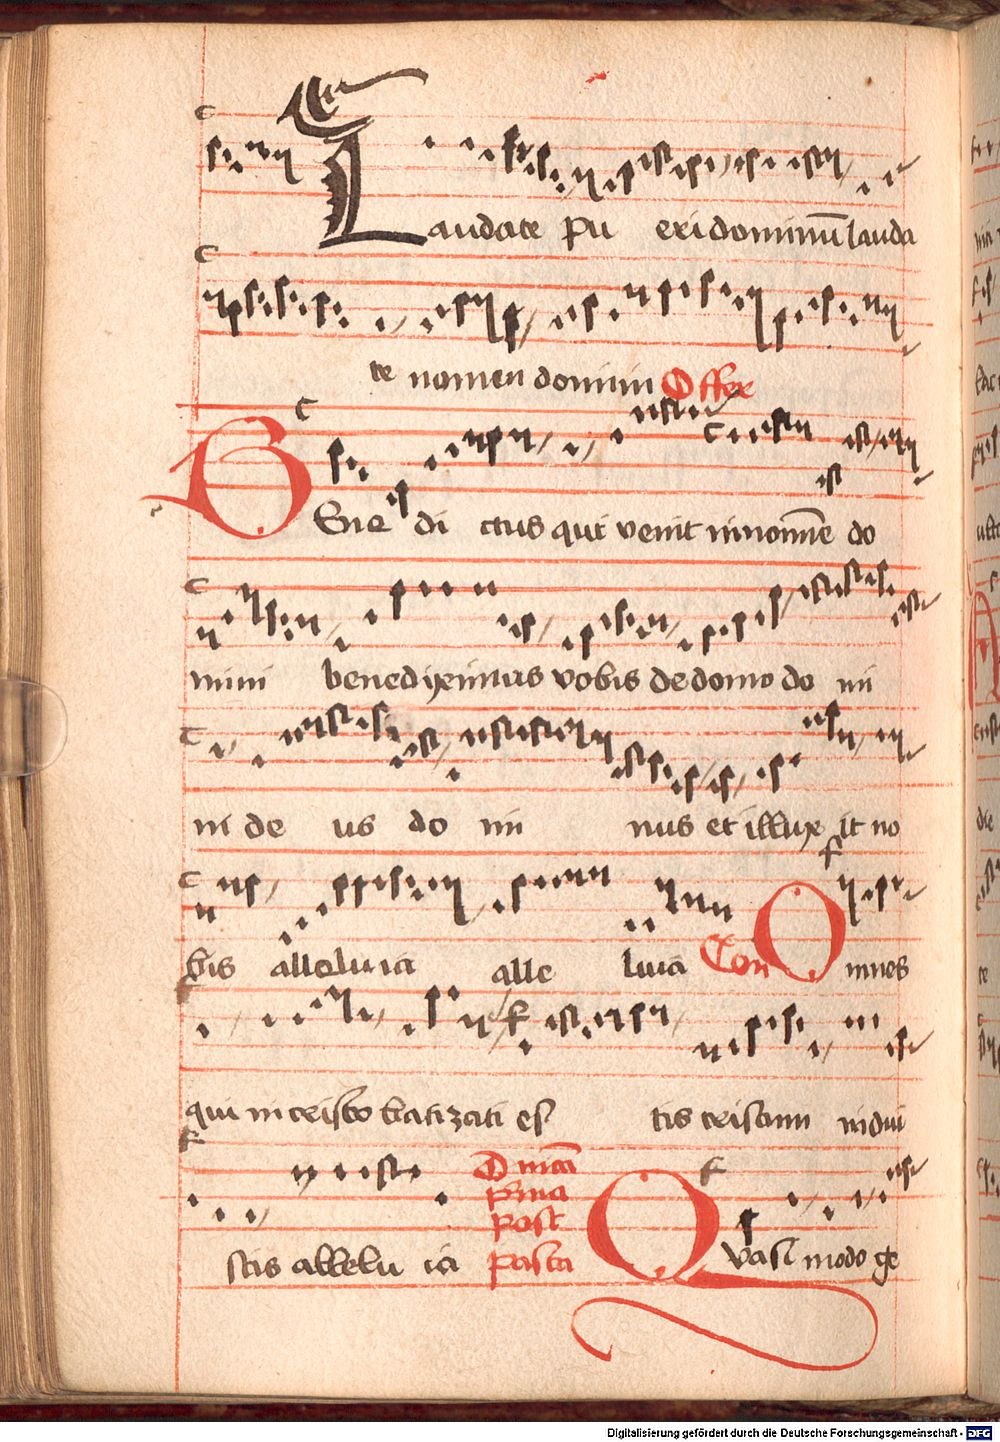 Laudate pu eri dominū lauda
te nomen domini Offer
Bene di ctus qui venit in noīne do
mini benediximus vobis de domo do mi
ni de us do mi nus et illuxe it no
bis alleluia alle luia Com Omnes
qui in cristo batizati es tis cristum indui
stis allelu ia Dnica
pma
post
pasca
Quasi modo ge
Digitalisierung gefördert durch die Deutsche Forschungsgemeinschaft - DFG